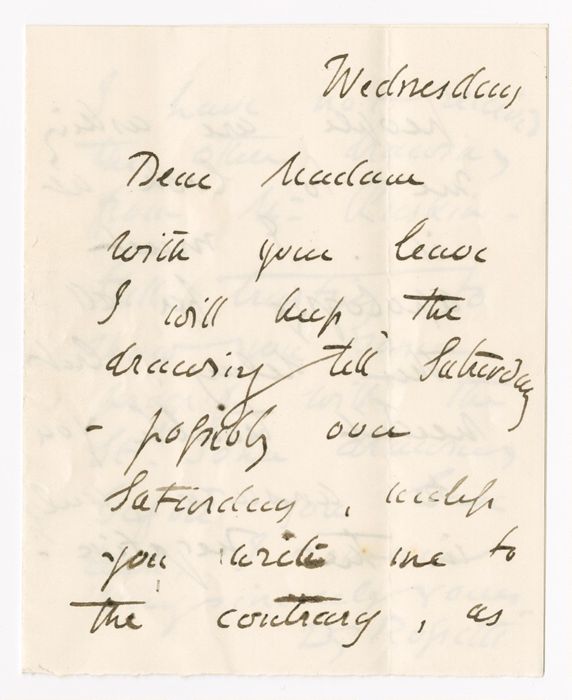 Wednesday
Dear Madam
With your leave
I will keep the
drawing till Saturday
- possibly over
Saturday, unless
you write me to
the contrary, as